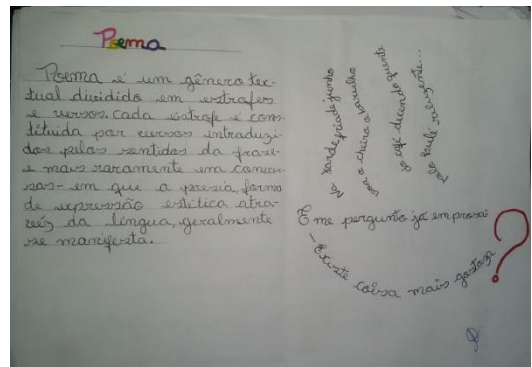 Poema
Poema é um gênero tex-
tual dividido em estrofes
e versos. Cada estrofe é cons-
tituída por versos introduzi-
dos pelos sentidos da frase
e mais raramente em conver-
sas - em que a poesia, forma
de expressão estética atra-
vés da língua, geralmente
se manifesta.
Na tarde fria de junho
vou o cheiro o barulho
do café descendo quente
pelo bule reluzente...
E me pergunto já em prosa:
- Existe coisa mais gostosa?